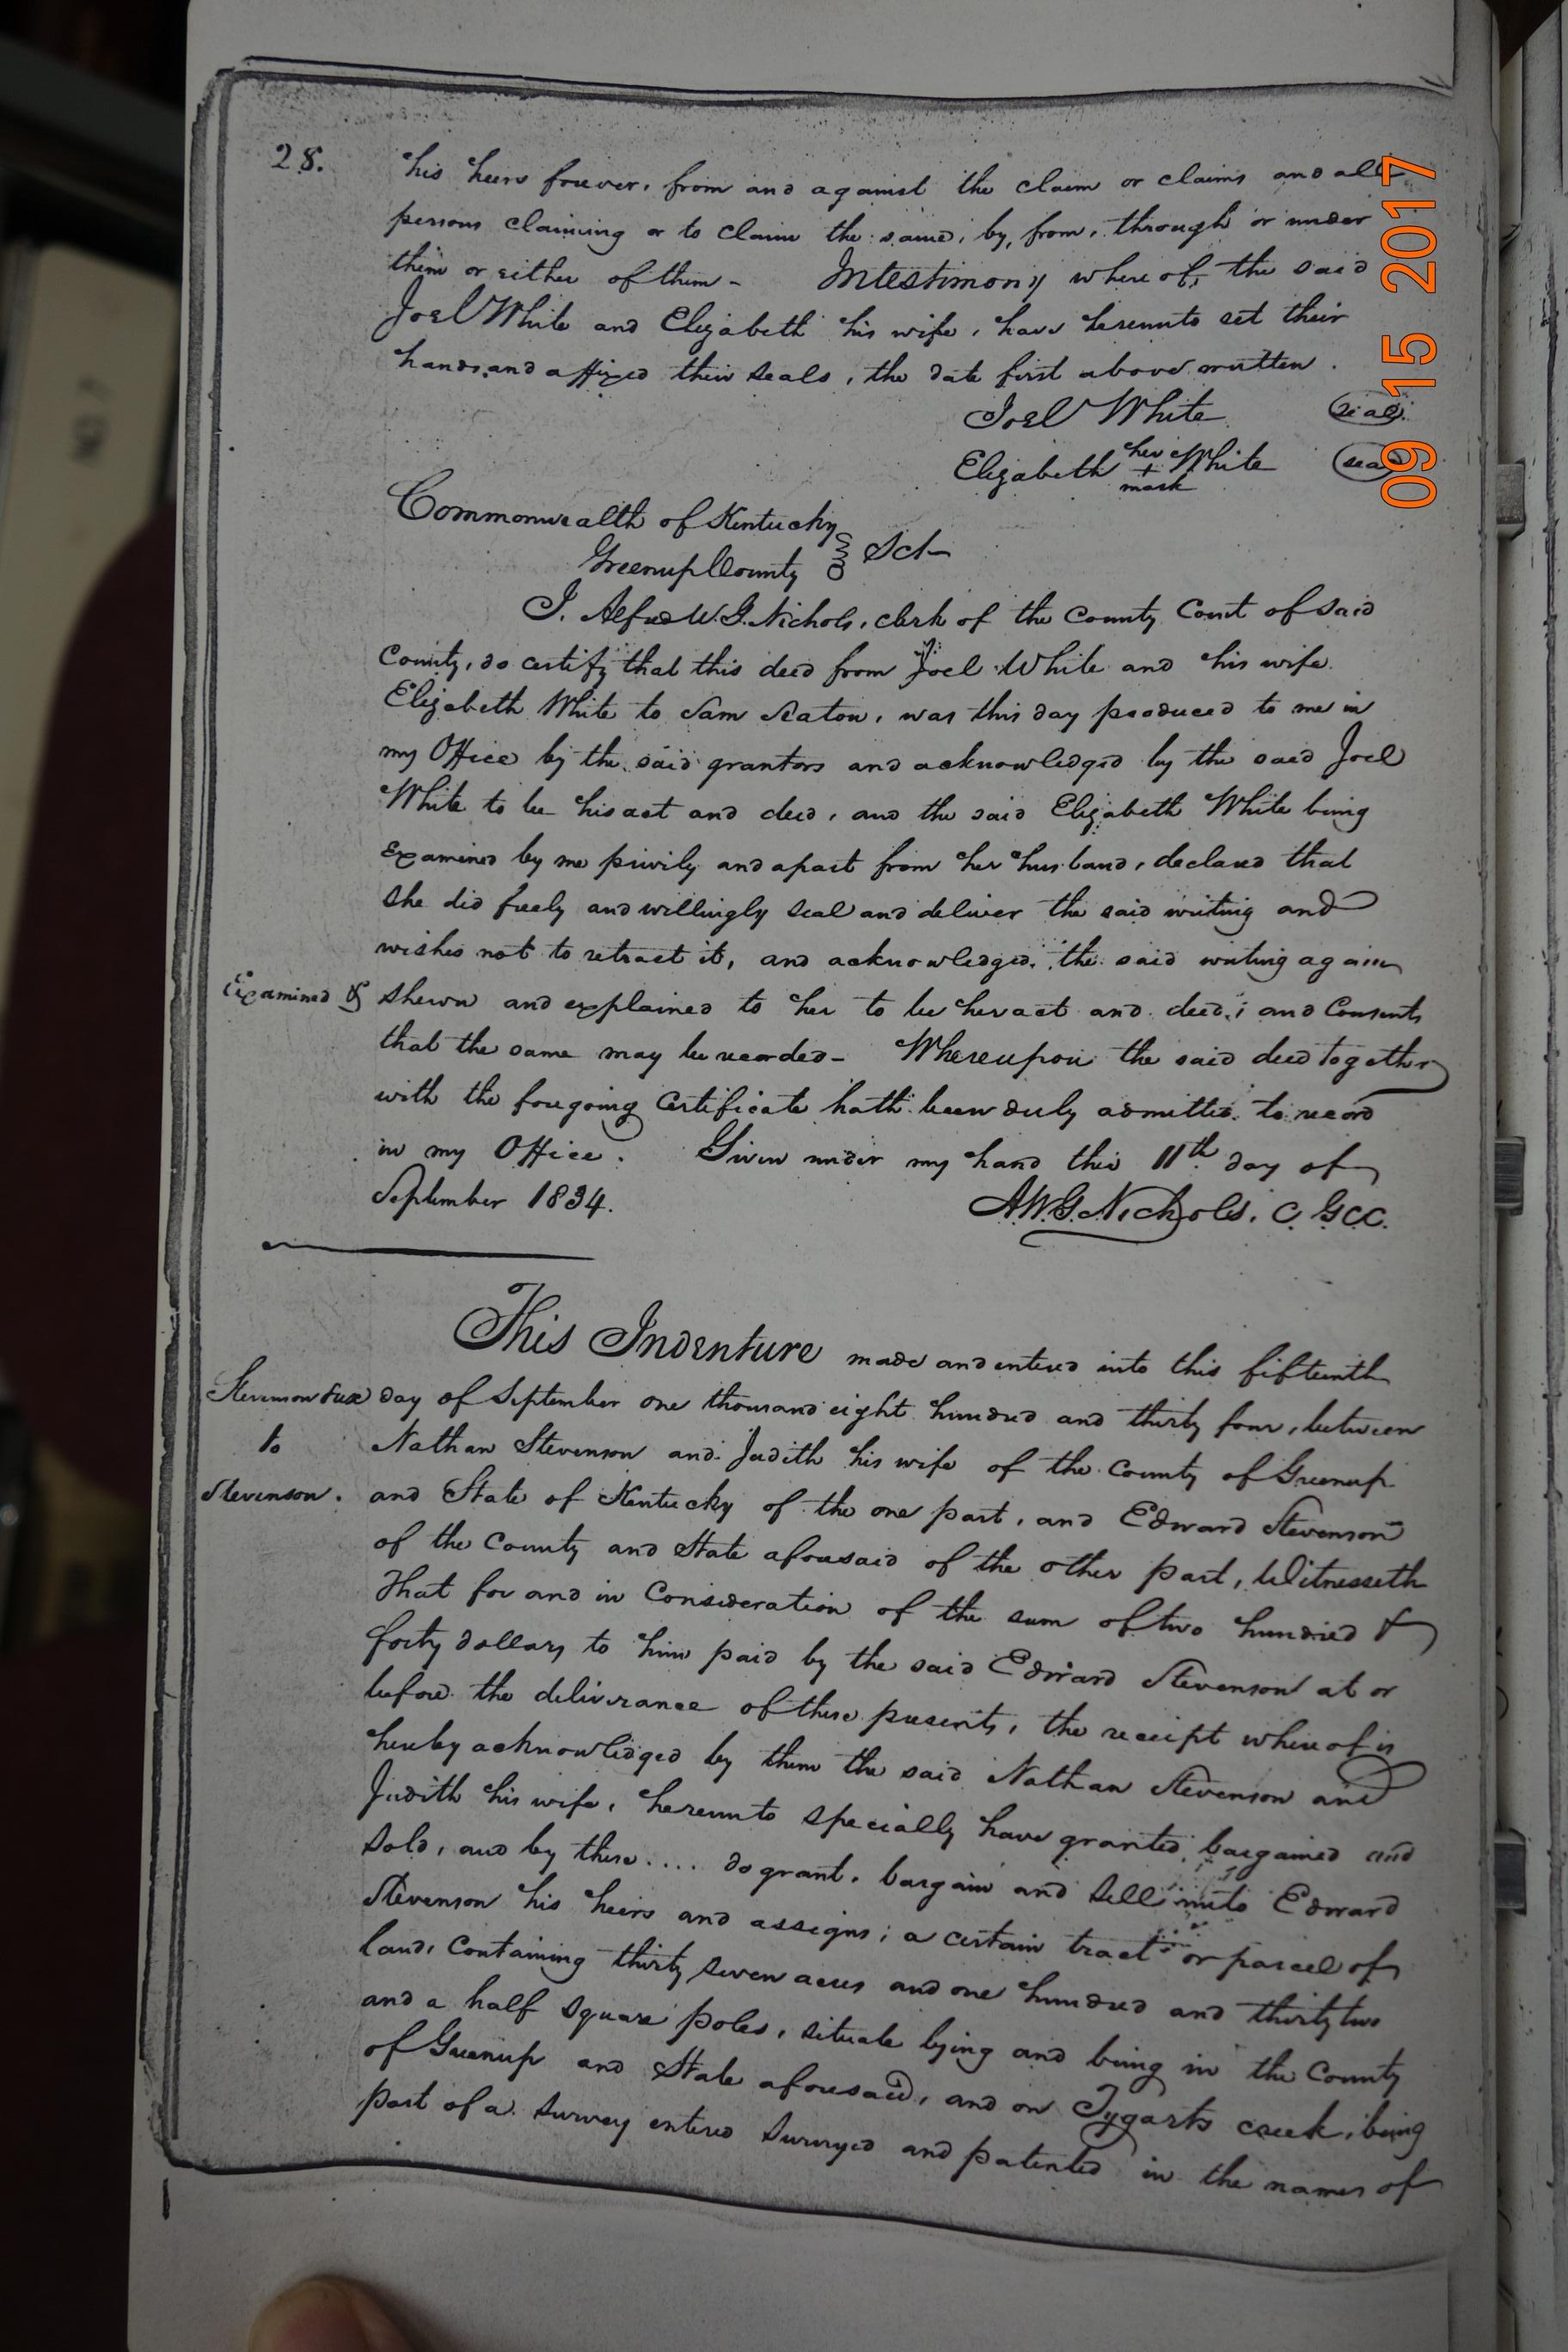 28.
his heirs forever, from and against the claim or claims and all
persons claiming or to claim the same, by, from, through or under
them or either of them - Intestimony where of, the said
Joel White and Elizabeth his wife, have hereunto set their
hands, and affixed their seals, the date first above written.
Joel White (seal)
Elizabeth her + mark White (seal)
Commonwealth of Kentucky
Greenup County Sct-
I. Alfred W. G. Nichols, clerk of the County Court of said
County, do certify that this deed from Joel White and his wife
Elizabeth White to Sam Seaton, was this day produced to me in
my Office by the said grantors and acknowledged by the said Joel
White to be his act and deed, and the said Elizabeth White being
Examined by me privily and apart from her husband, declared that
she did freely and willingly seal and deliver the said writing and
wishes not to retract it, and acknowledged, the said writing again
Examined &
shewn and explained to her to be her act and deed; and Consents
that the same may be recorded- Whereupon the said deed together
with the foregoing Certificate hath been duly admitted to record
in my Office. Given under my hand this 11th day of
September 1834.
A.W.G. Nichols, C. GCC.
This Indenture made and entered into this fifteenth
Stevenson & ux
to
Stevenson.
day of September one thousand eight hundred and thirty four, between
Nathan Stevenson and Judith his wife of the County of Greenup
and State of Kentucky of the one part, and Edward Stevenson
of the County and State aforesaid of the other part, Witnesseth
That for and in Consideration of the sum of two hundred &
forty dollars to him paid by the said Edward Stevenson at or
before the deliverance of these presents, the receipt whereof is
hereby acknowledged by them the said Nathan Stevenson and
Judith his wife, hereunto specially have granted, bargained and
sold, and by these .... do grant, bargain and sell unto Edward
Stevenson his heirs and assigns; a certain tract or parcel of
land, Containing thirty seven acres and one hundred and thirty two
and a half square poles, situate lying and being in the County
of Greenup and State aforesaid, and on Tygarts creek, being
part of a survey entered surveyed and patented in the names of
09 15 2017